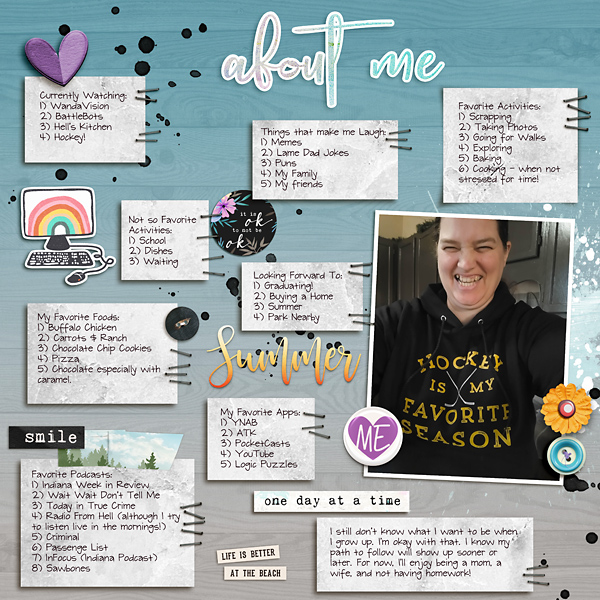 about me
Currently Watching:
1) WandaVision
2) BattleBots
3) Hell's Kitchen
4) Hockey!
Things that make me Laugh:
1) Memes
2) Lame Dad Jokes
3) Puns
4) My Family
5) My friends
Favorite Activities:
1) Scrapping
2) Taking Photos
3) Going for Walks
4) Exploring
5) Baking
6) Cooking - when not
stressed for time!
Not so Favorite
Activities:
1) School
2) Dishes
3) Waiting
it is
ok
to not be
ok
Looking Forward To:
1) Graduating!
2) Buying a Home
3) Summer
4) Park Nearby
My Favorite Foods:
1) Buffalo Chicken
2) Carrots & Ranch
3) Chocolate Chip Cookies
4) Pizza
5) Chocolate especially with
caramel.
Summer
HOCKEY
IS MY
FAVORITE
SEASON
ME
My Favorite Apps:
1) YNAB
2) ATK
3) PocketCasts
4) YouTube
5) Logic Puzzles
smile
Favorite Podcasts:
1) Indiana Week in Review
2) Wait Wait Don't Tell Me
3) Today in True Crime
4) Radio From Hell (although I try
to listen live in the mornings!)
5) Criminal
6) Passenge List
7) InFocus (Indiana Podcast)
8) Sawbones
one day at a time
LIFE IS BETTER
AT THE BEACH
I still don't know what I want to be when
I grow up. I'm okay with that. I know my
path to follow will show up sooner or
later. For now, I'll enjoy being a mom, a
wife, and not having homework!